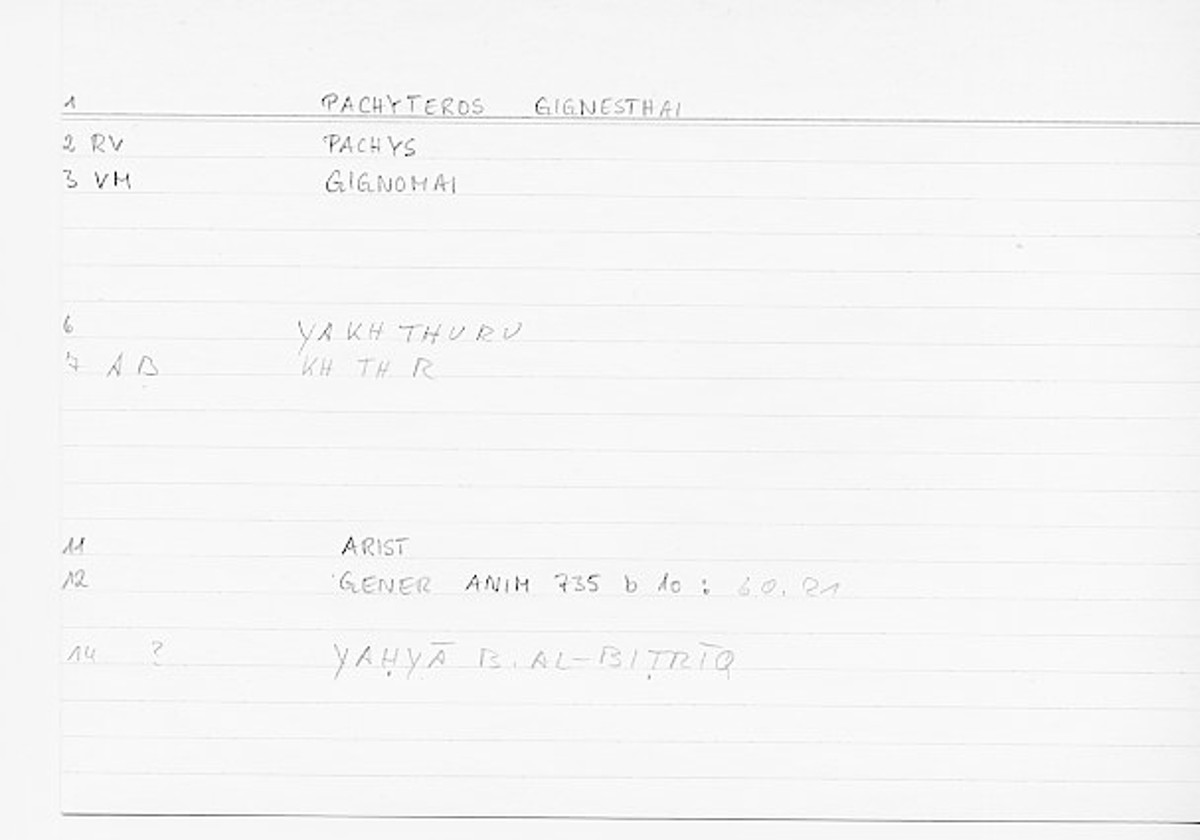 1 PACHYTEROS GIGNESTHAI
2 RV PACHYS
3 VM GIGNOMAI
6 YAKHTHURU
7 AB KH TH R
11 ARIST
12 GENER ANIM 735 b 10 : 60.21
14 ? YAḤYĀ B. AL-BIṬRĪQ